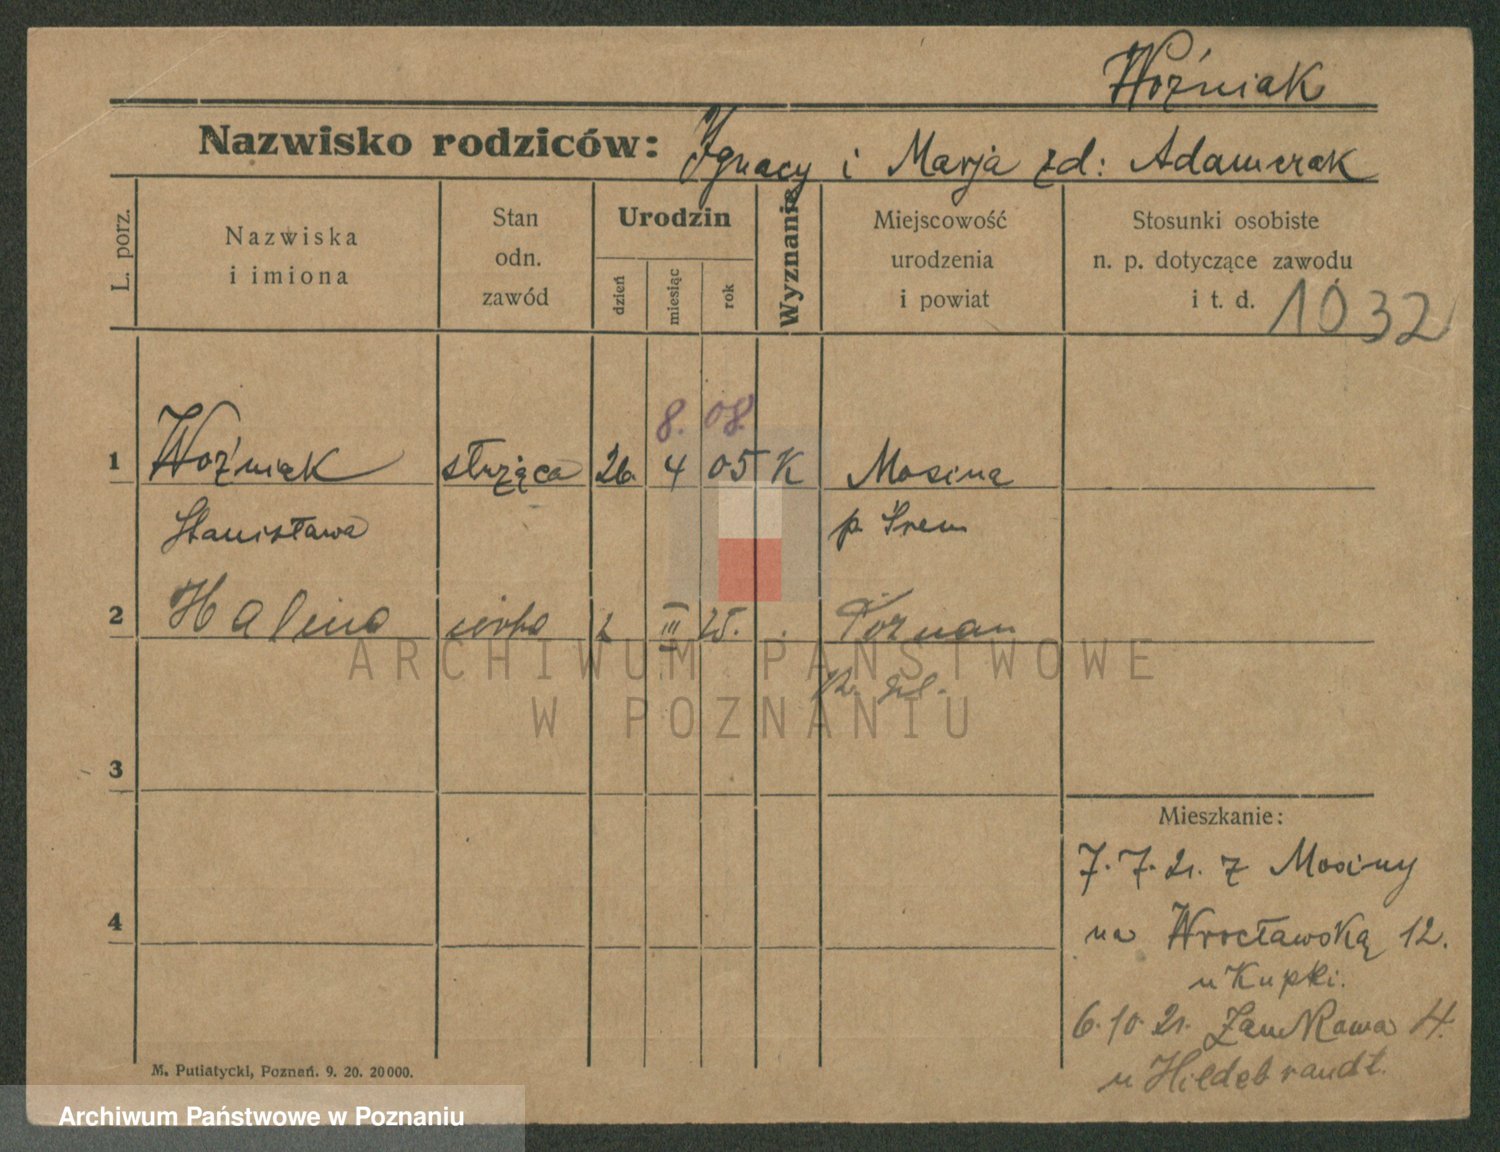 Woźniak
Nazwisko rodziców: Ignacy i Marja zd: Adamczak
L. porz.
Nazwiska
i imiona
Stan
odn.
zawód
Urodzin
dzień
miesiąc
rok
Wyznanie
Miejscowość
urodzenia
i powiat
Stosunki osobiste
n. p. dotyczące zawodu
i t. d.
1032
8. 08
1 Woźniak służąca 26. 4 05 K Mosina
Stanisława p. Śrem
2 Halina córka 2 III 25. Poznań
ARCHIWUM PAŃSTWOWE
W POZNANIU
3
Mieszkanie:
7.7.21. z Mosiny
4
na Wrocławską 12.
u Kupki.
6.10.21. Zamkowa 4.
u Hildebrandt.
M. Putiatycki, Poznań. 9. 20. 20000.
Archiwum Państwowe w Poznaniu